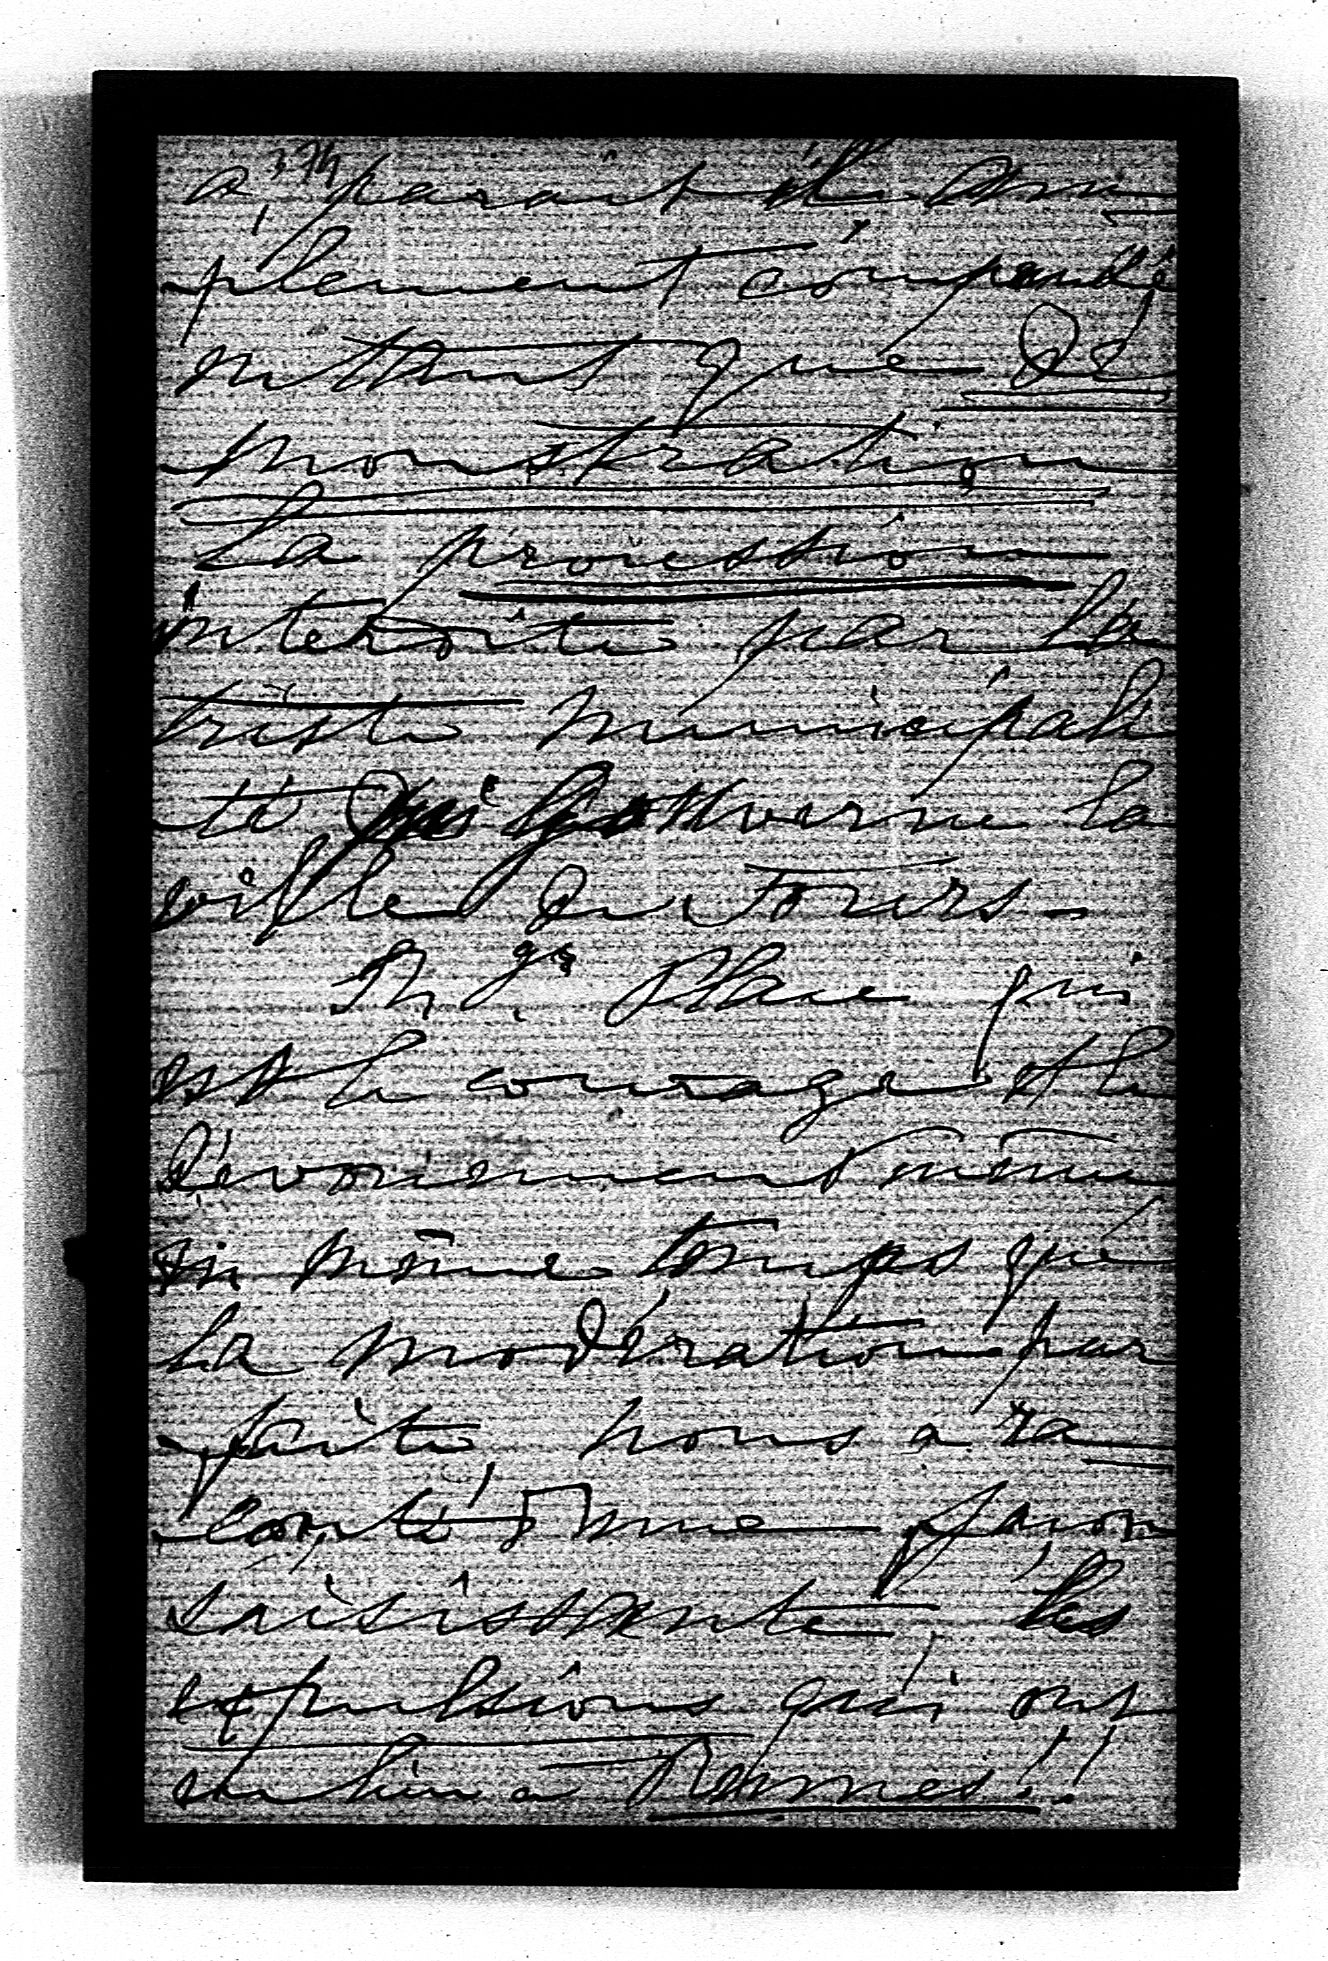 a, paraît-il am
plement compensé
mettant que Dé
monstration
La procession
interdite par la
triste municipali
té qui gouverne la
ville de Tours _
M.gr Place qui
est le courage et le
Dévouement même
en même temps que
la modération par
faite, nous a ra
conté d'une façon
saisissante, les
expulsions qui ont
eu lieu à Rennes!!